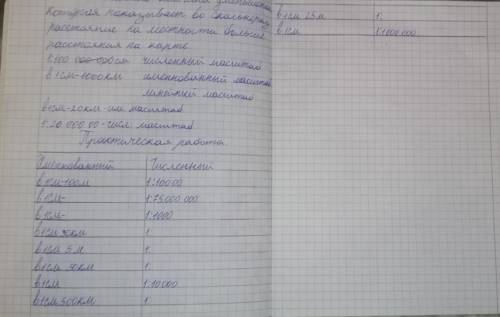 которая показывает во сколько раз
расстояние на местности больше
расстояния на карте.
численный масштаб
в 1см-1000км именованный масштаб
линейный масштаб
в 1см-20км-им масштаб
масштаб
Практическая работа.
Именованный Численный
в 1см-100м 1:10000
в 1см- 1:75000 000
в 1см- 1:1000
в 1см 1:
в 1см 5м 1:
в 1см 30км 1:
в 1см 1:10 000
в 1см 500км 1:
в 1см 25м 1:
в 1см